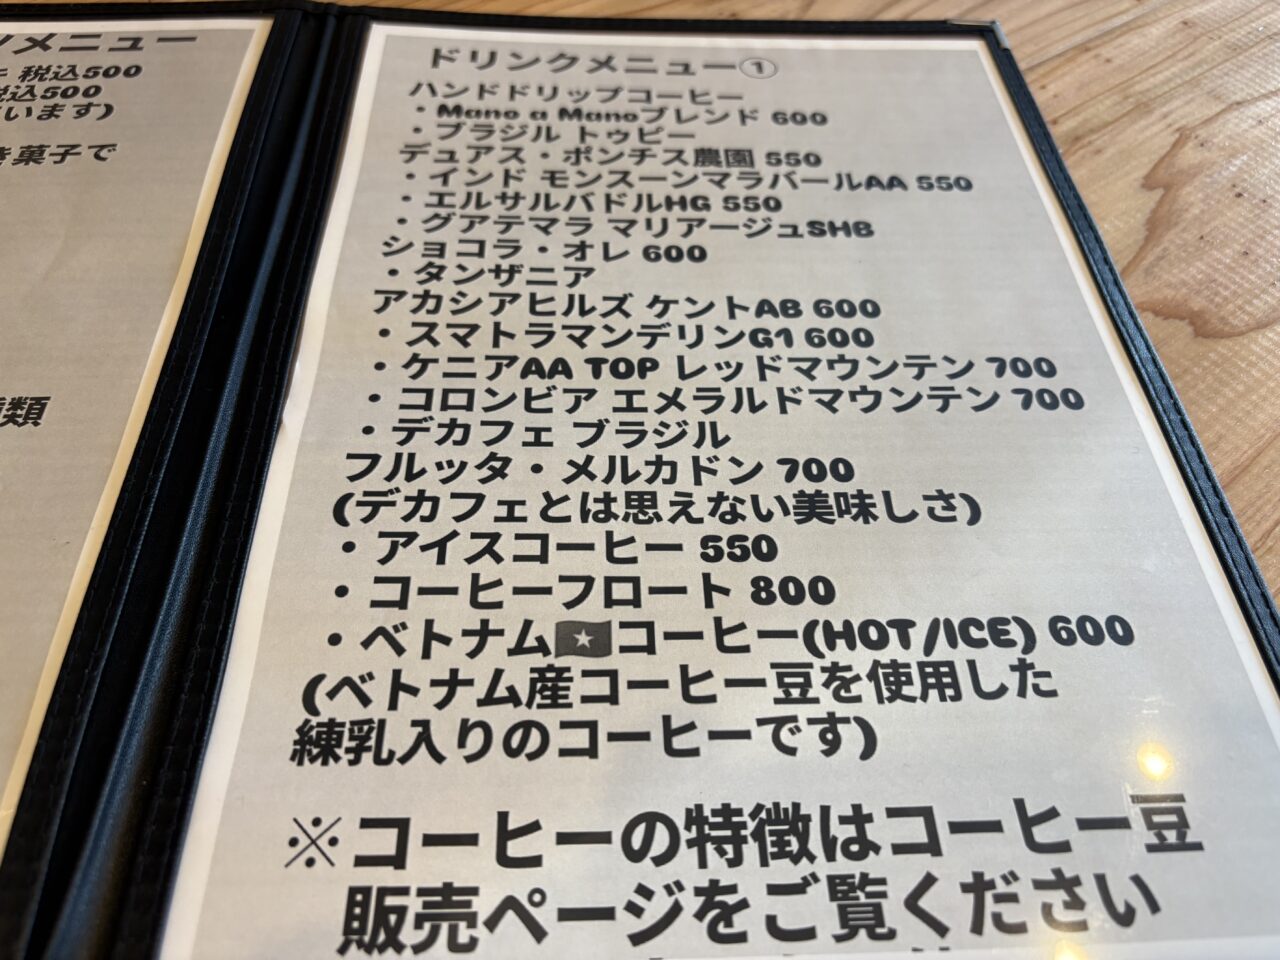 メニュー
税込500
税込500
います)
き菓子で
類
ドリンクメニュー①
ハンドドリップコーヒー
・Mano a Manoブレンド 600
・ブラジル トゥピー
デュアス・ポンチス農園 550
・インド モンスーンマラバールAA 550
・エルサルバドルHG 550
・グアテマラ マリアージュSHB
ショコラ・オレ 600
・タンザニア
アカシアヒルズ ケントAB 600
・スマトラマンデリンG1 600
・ケニアAA TOP レッドマウンテン 700
・コロンビア エメラルドマウンテン 700
・デカフェ ブラジル
フルッタ・メルカドン 700
(デカフェとは思えない美味しさ)
・アイスコーヒー 550
・コーヒーフロート 800
・ベトナム🇻🇳コーヒー(HOT/ICE) 600
(ベトナム産コーヒー豆を使用した
練乳入りのコーヒーです)
※コーヒーの特徴はコーヒー豆
販売ページをご覧ください